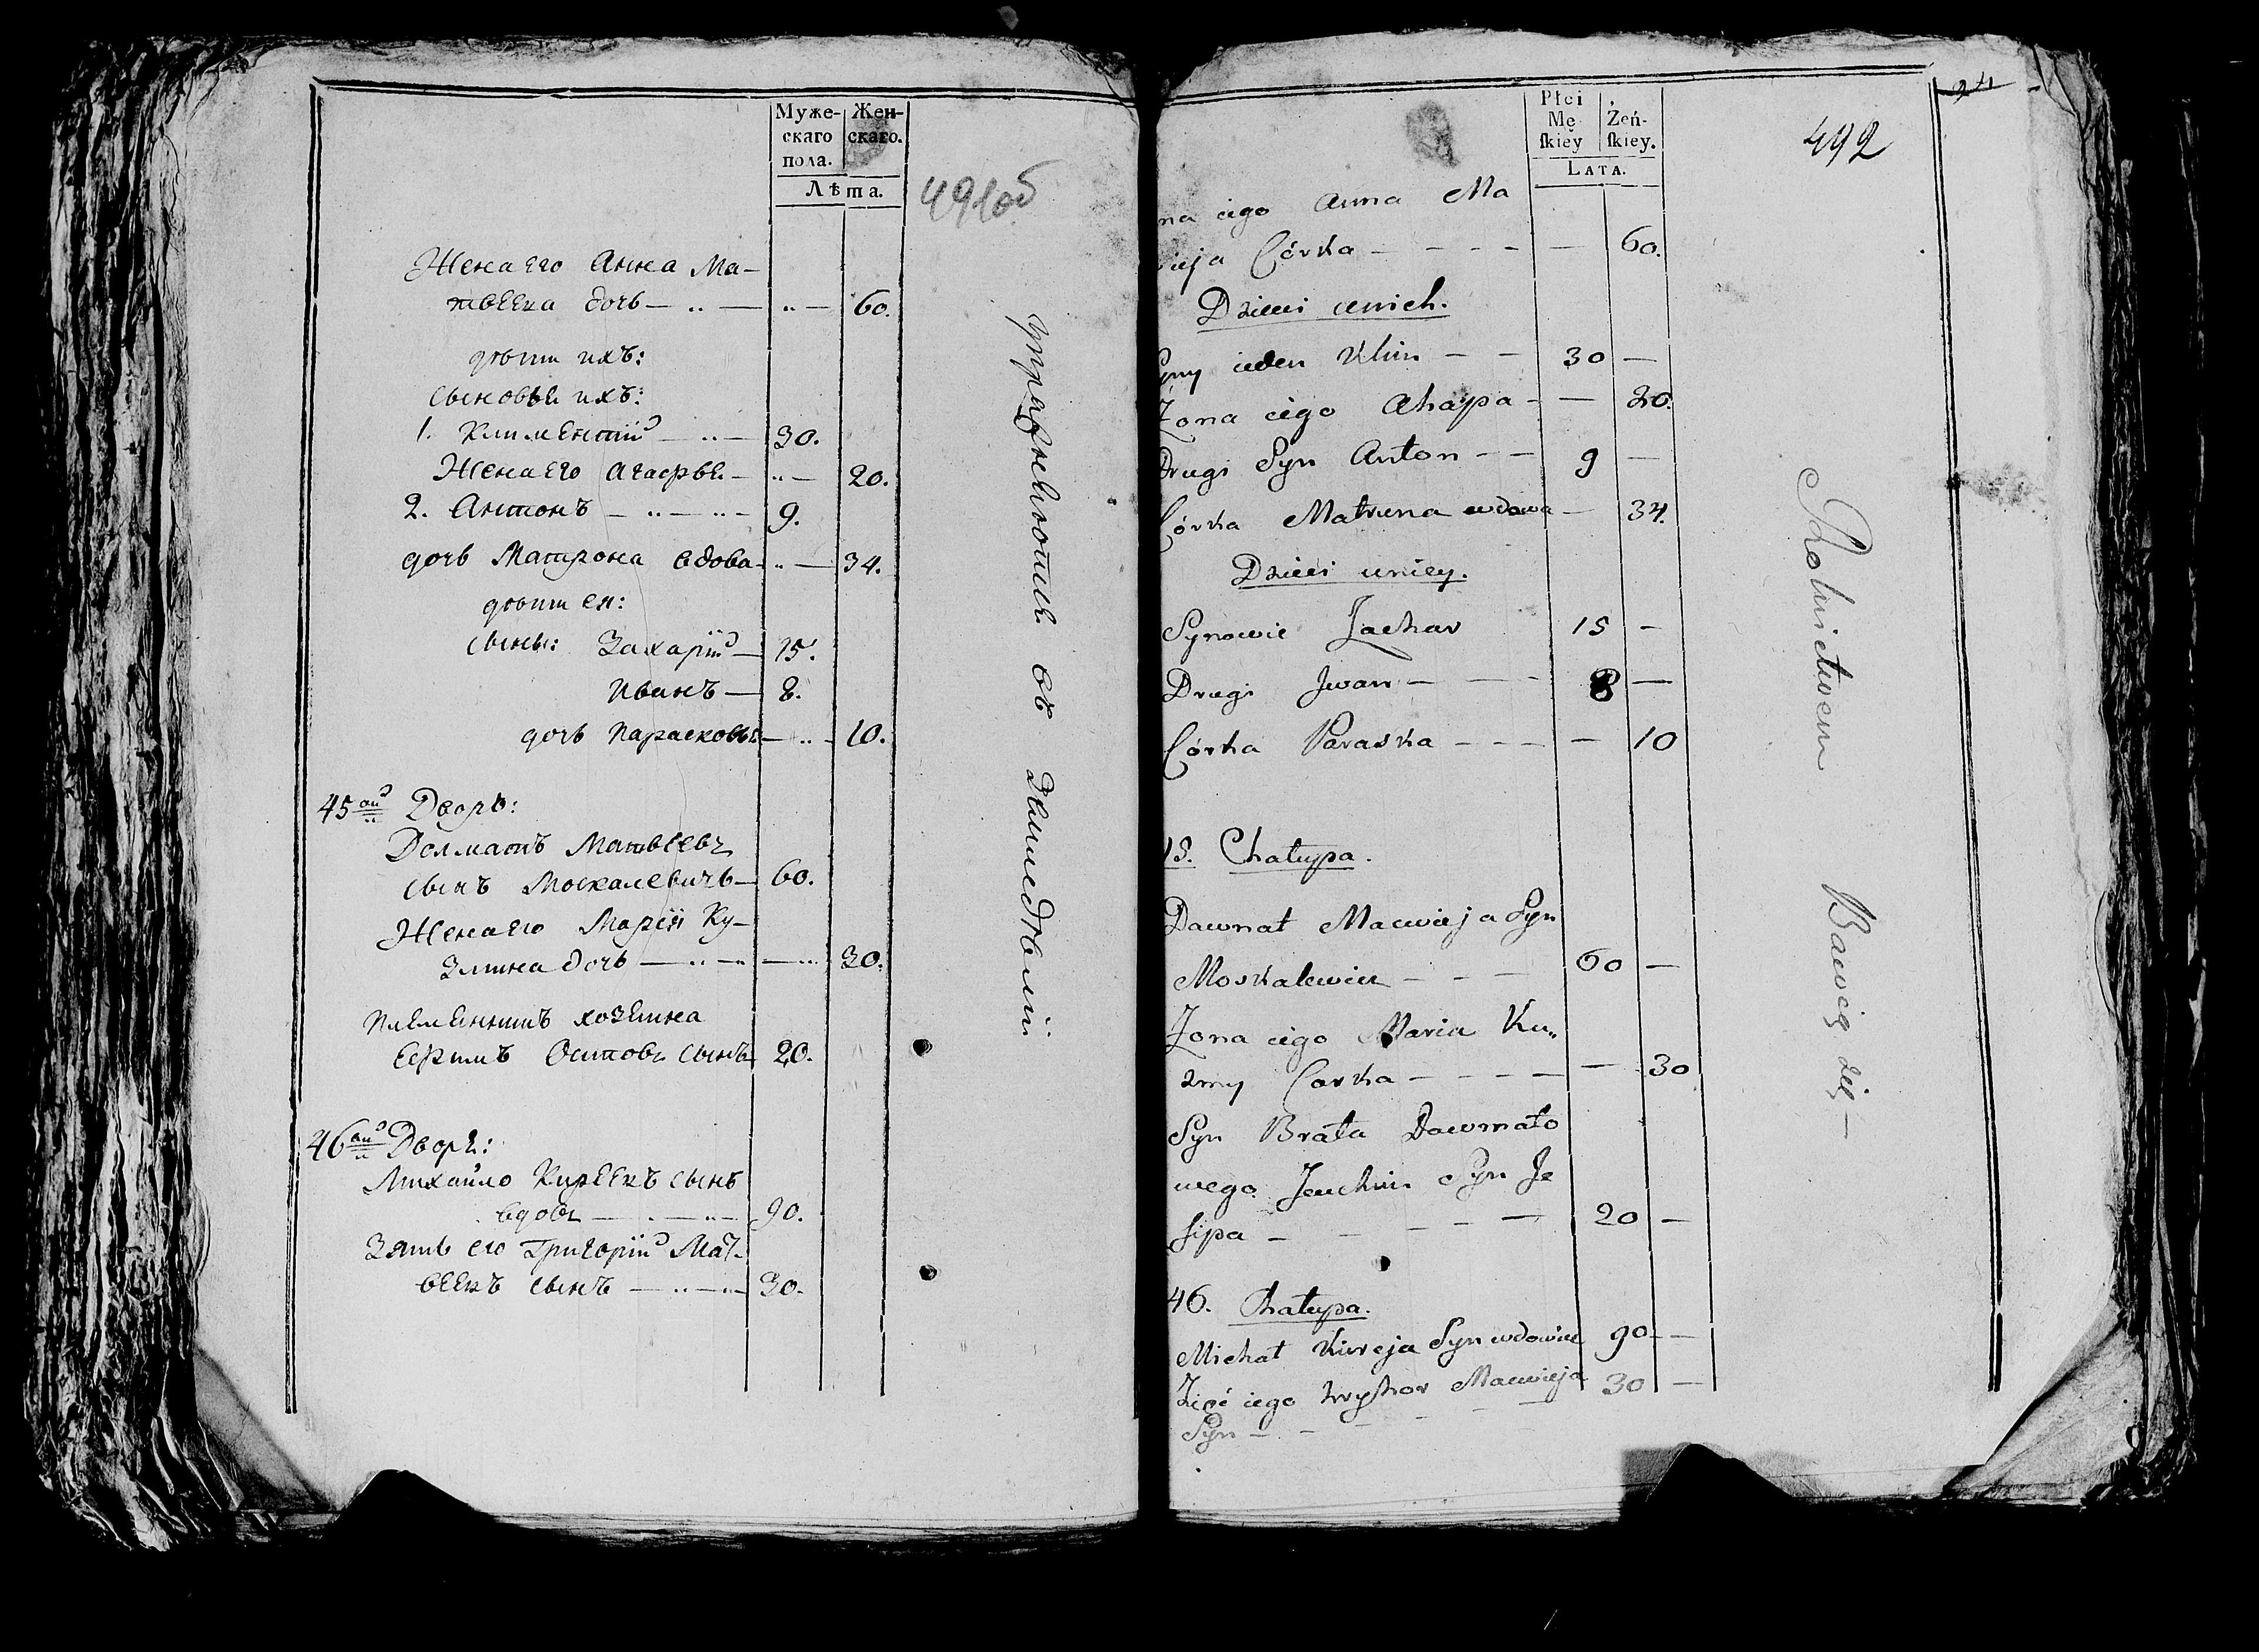 Муже-
скаго
пола.
Жен-
скаго.
Лѣта.
491об
Жена его Анна Ма-
твеева дочь — 60.
дѣти ихъ:
сыновьи ихъ:
1. Климентій — 30.
Жена его Агафья — 20.
2. Антонъ — 9.
дочь Матрона вдова — 34.
дѣти ея:
сыны: Захарій — 15.
Иванъ — 8.
дочь Парасковья — 10.
45ой Дворъ:
Долматъ Матвѣевъ
сынъ Москалевичъ — 60.
Жена его Марія Ку-
змина дочь — 30.
Племянникъ хозяина
Ефимъ Осиповъ сынъ 20.
46ой Дворъ:
Михайло Киреевъ сынъ
вдовъ — 90.
Зять его Григорій Мат-
веевъ сынъ — 30.
упражняются въ земледѣліи
Płci
Mę
skiey
Żeń-
skiey.
LATA.
24
492
na iego Anna Ma
wieja Córka — — 60.
Dzieci u nich.
Syny ieden Klim — 30 —
Żona iego Ahapa — — 20.
Drugi Syn Anton — 9 —
Córka Matruna wdowa — 34.
Dzieci u niey.
Synowie Zachar 15 —
Drugi Jwan — 8 —
Córka Paraska — — 10
45. Chałupa.
Dawmat Macwieja Syn
Moskalewicz — 60 —
Żona iego Maria Ku„
zmy Corka — — 30
Syn Brata Dawmato
wego Jeuchim Syn Jo
sipa — 20 —
46. Chałupa.
Michał Kireja Syn wdowiec 90 —
Zięć iego Hryhor Macwieja 30 —
Syn —
Rolnictwem Bawią się —